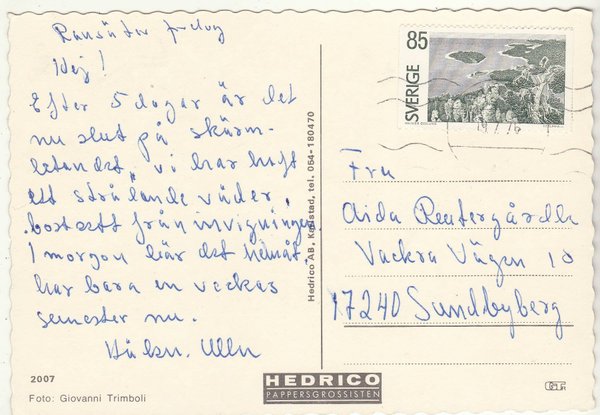 Ransäter fredag
Hej!
Efter 5 dagar är det
nu slut på skärm-
letandet, vi har haft
ett strålande väder,
bortsett från invigningen.
I morgon bär det hemåt.
har bara en veckas
semester nu.
Ulla
2007
Foto: Giovanni Trimboli
Hedrico AB, Karlstad, tel. 054-180470
HEDRICO
PAPPERSGROSSISTEN
SVERIGE 85
Fru
Aida Reutergårdh
Vackra Vägen 10
17240 Sundbyberg